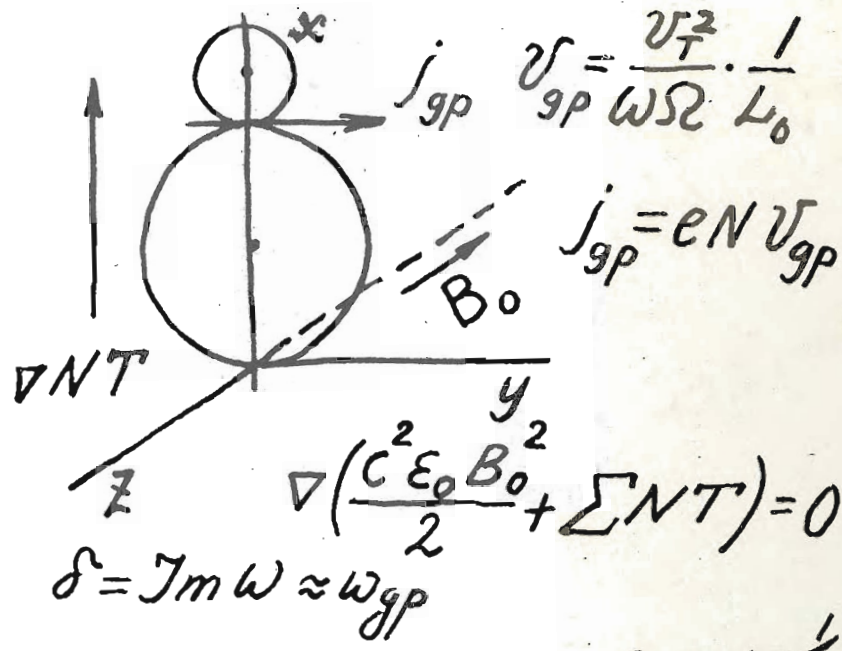 x
j_gp v_gp = v_T² / ωΩ · 1 / L₀
j_gp = eN v_gp
B₀
∇NT
y
z
∇(c² ε₀ B₀² / 2 + ΣNT) = 0
δ = Jm ω ≈ ω_gp